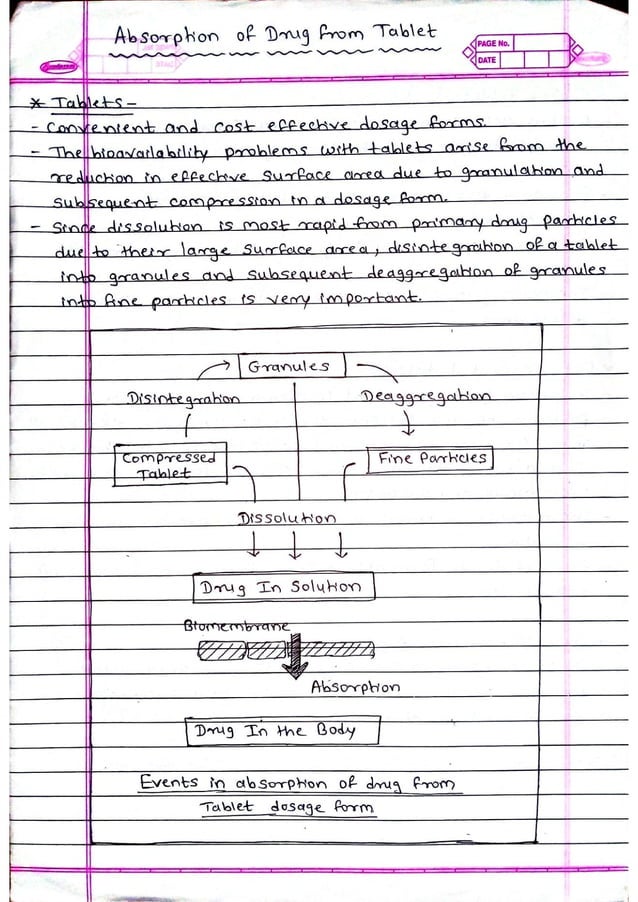 Absorption of Drug from Tablet
PAGE No.
DATE
* Tablets -
- Convenient and cost effective dosage forms.
- The bioavailability problems with tablets arise from the
reduction in effective surface area due to granulation and
subsequent compression in a dosage form.
- Since dissolution is most rapid from primary drug particles
due to their large surface area, disintegration of a tablet
into granules and subsequent deaggregation of granules
into fine particles is very important.
Granules
Disintegration
Deaggregation
Compressed
Tablet
Fine Particles
Dissolution
Drug In Solution
Biomembrane
Absorption
Drug In the Body
Events in absorption of drug from
Tablet dosage form